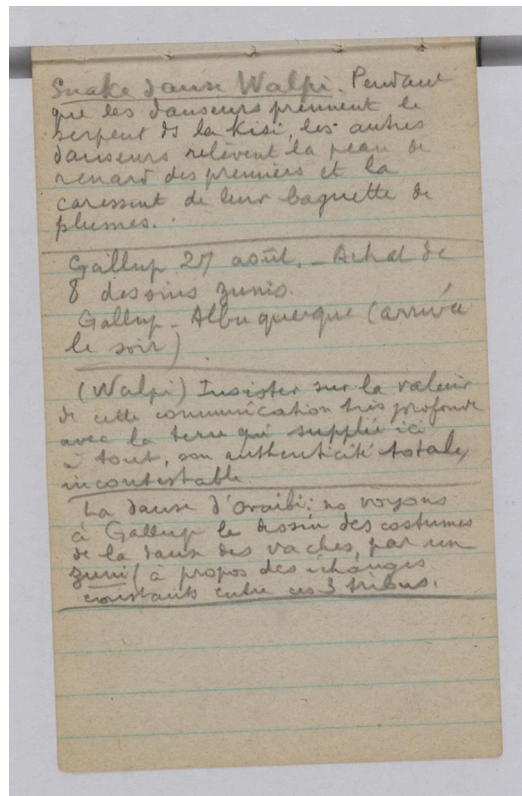 Snake danse Walpi. Pendant
que les danseurs prennent le
serpent ds la Kisi, les autres
danseurs relèvent la peau de
renard des premiers et la
caressent de leur baguette de
plumes.
Gallup 27 août. _ Achat de
8 dessins zunis.
Gallup - Albuquerque (arrivée
le soir)
(Walpi) Insister sur la valeur
de cette communication très profonde
avec la terre qui supplée ici
à tout, son authenticité totale,
incontestable
La danse d'Oraibi: ns voyons
à Gallup le dessin des costumes
de la danse des vaches, par un
zuni (à propos des échanges
constants entre ces 3 tribus.